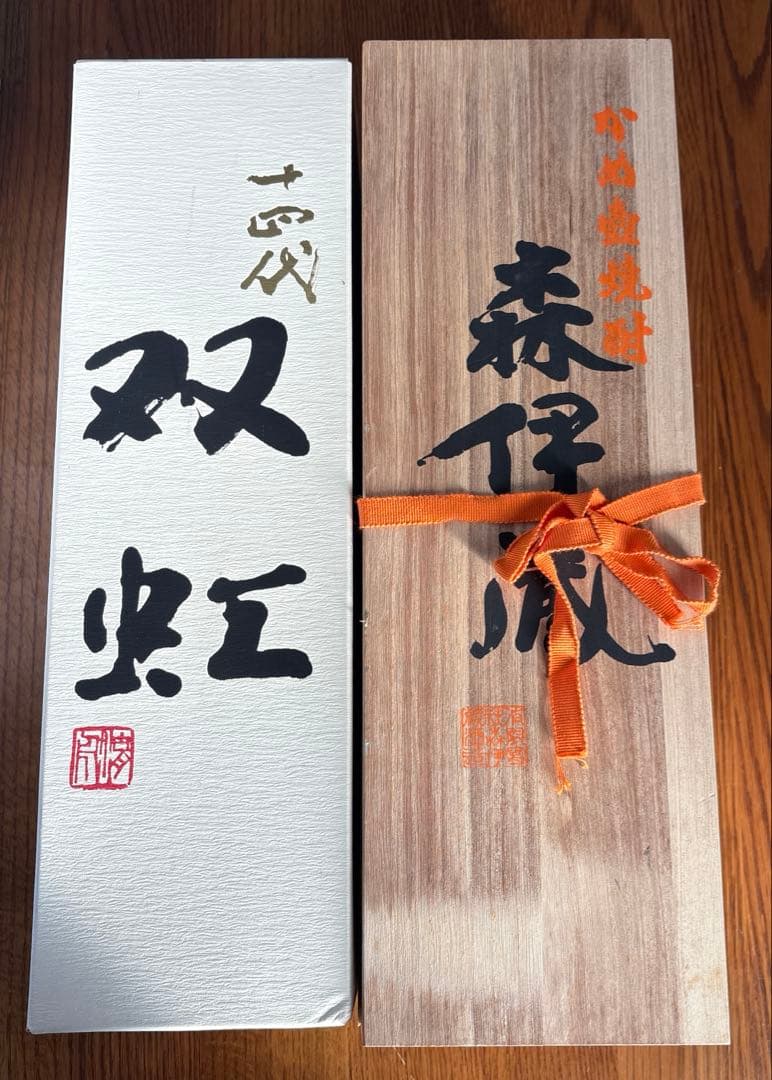 十四代
双虹
かめ壺焼酎
森伊蔵